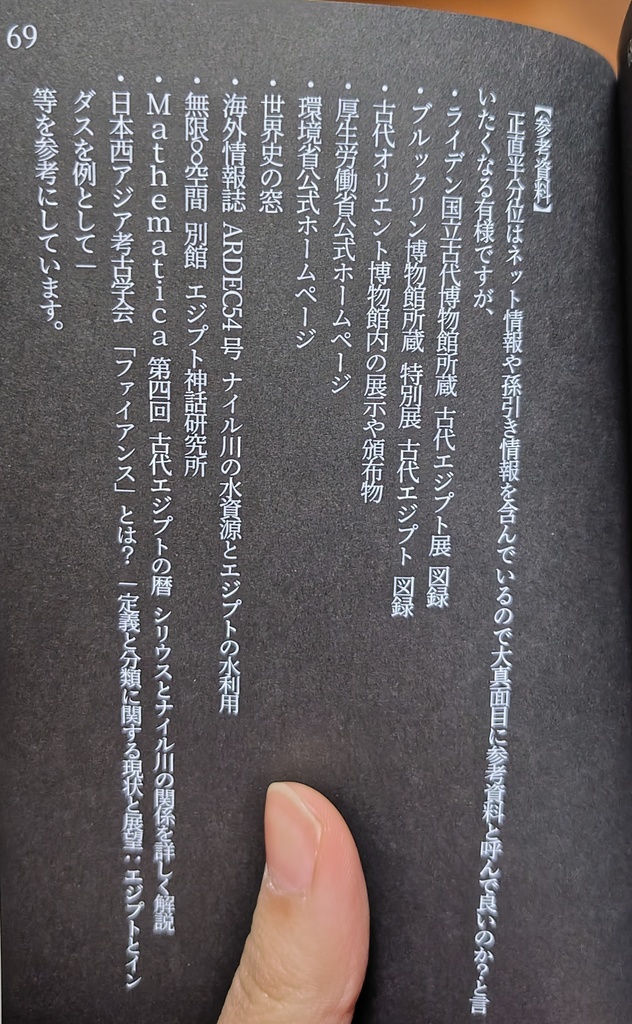 【参考資料】
正直半分位はネット情報や孫引き情報を含んでいるので大真面目に参考資料と呼んで良いのか?と言
いたくなる有様ですが、
・ライデン国立古代博物館所蔵 古代エジプト展 図録
・ブルックリン博物館所蔵 特別展 古代エジプト 図録
・古代オリエント博物館内の展示や頒布物
・厚生労働省公式ホームページ
・環境省公式ホームページ
・世界史の窓
・海外情報誌 ARDEC54号 ナイル川の水資源とエジプトの水利用
・無限∞空間 別館 エジプト神話研究所
・Mathematica 第四回 古代エジプトの暦 シリウスとナイル川の関係を詳しく解説
・日本西アジア考古学会 「ファイアンス」とは? ―定義と分類に関する現状と展望:エジプトとイン
ダスを例として―
等を参考にしています。
69